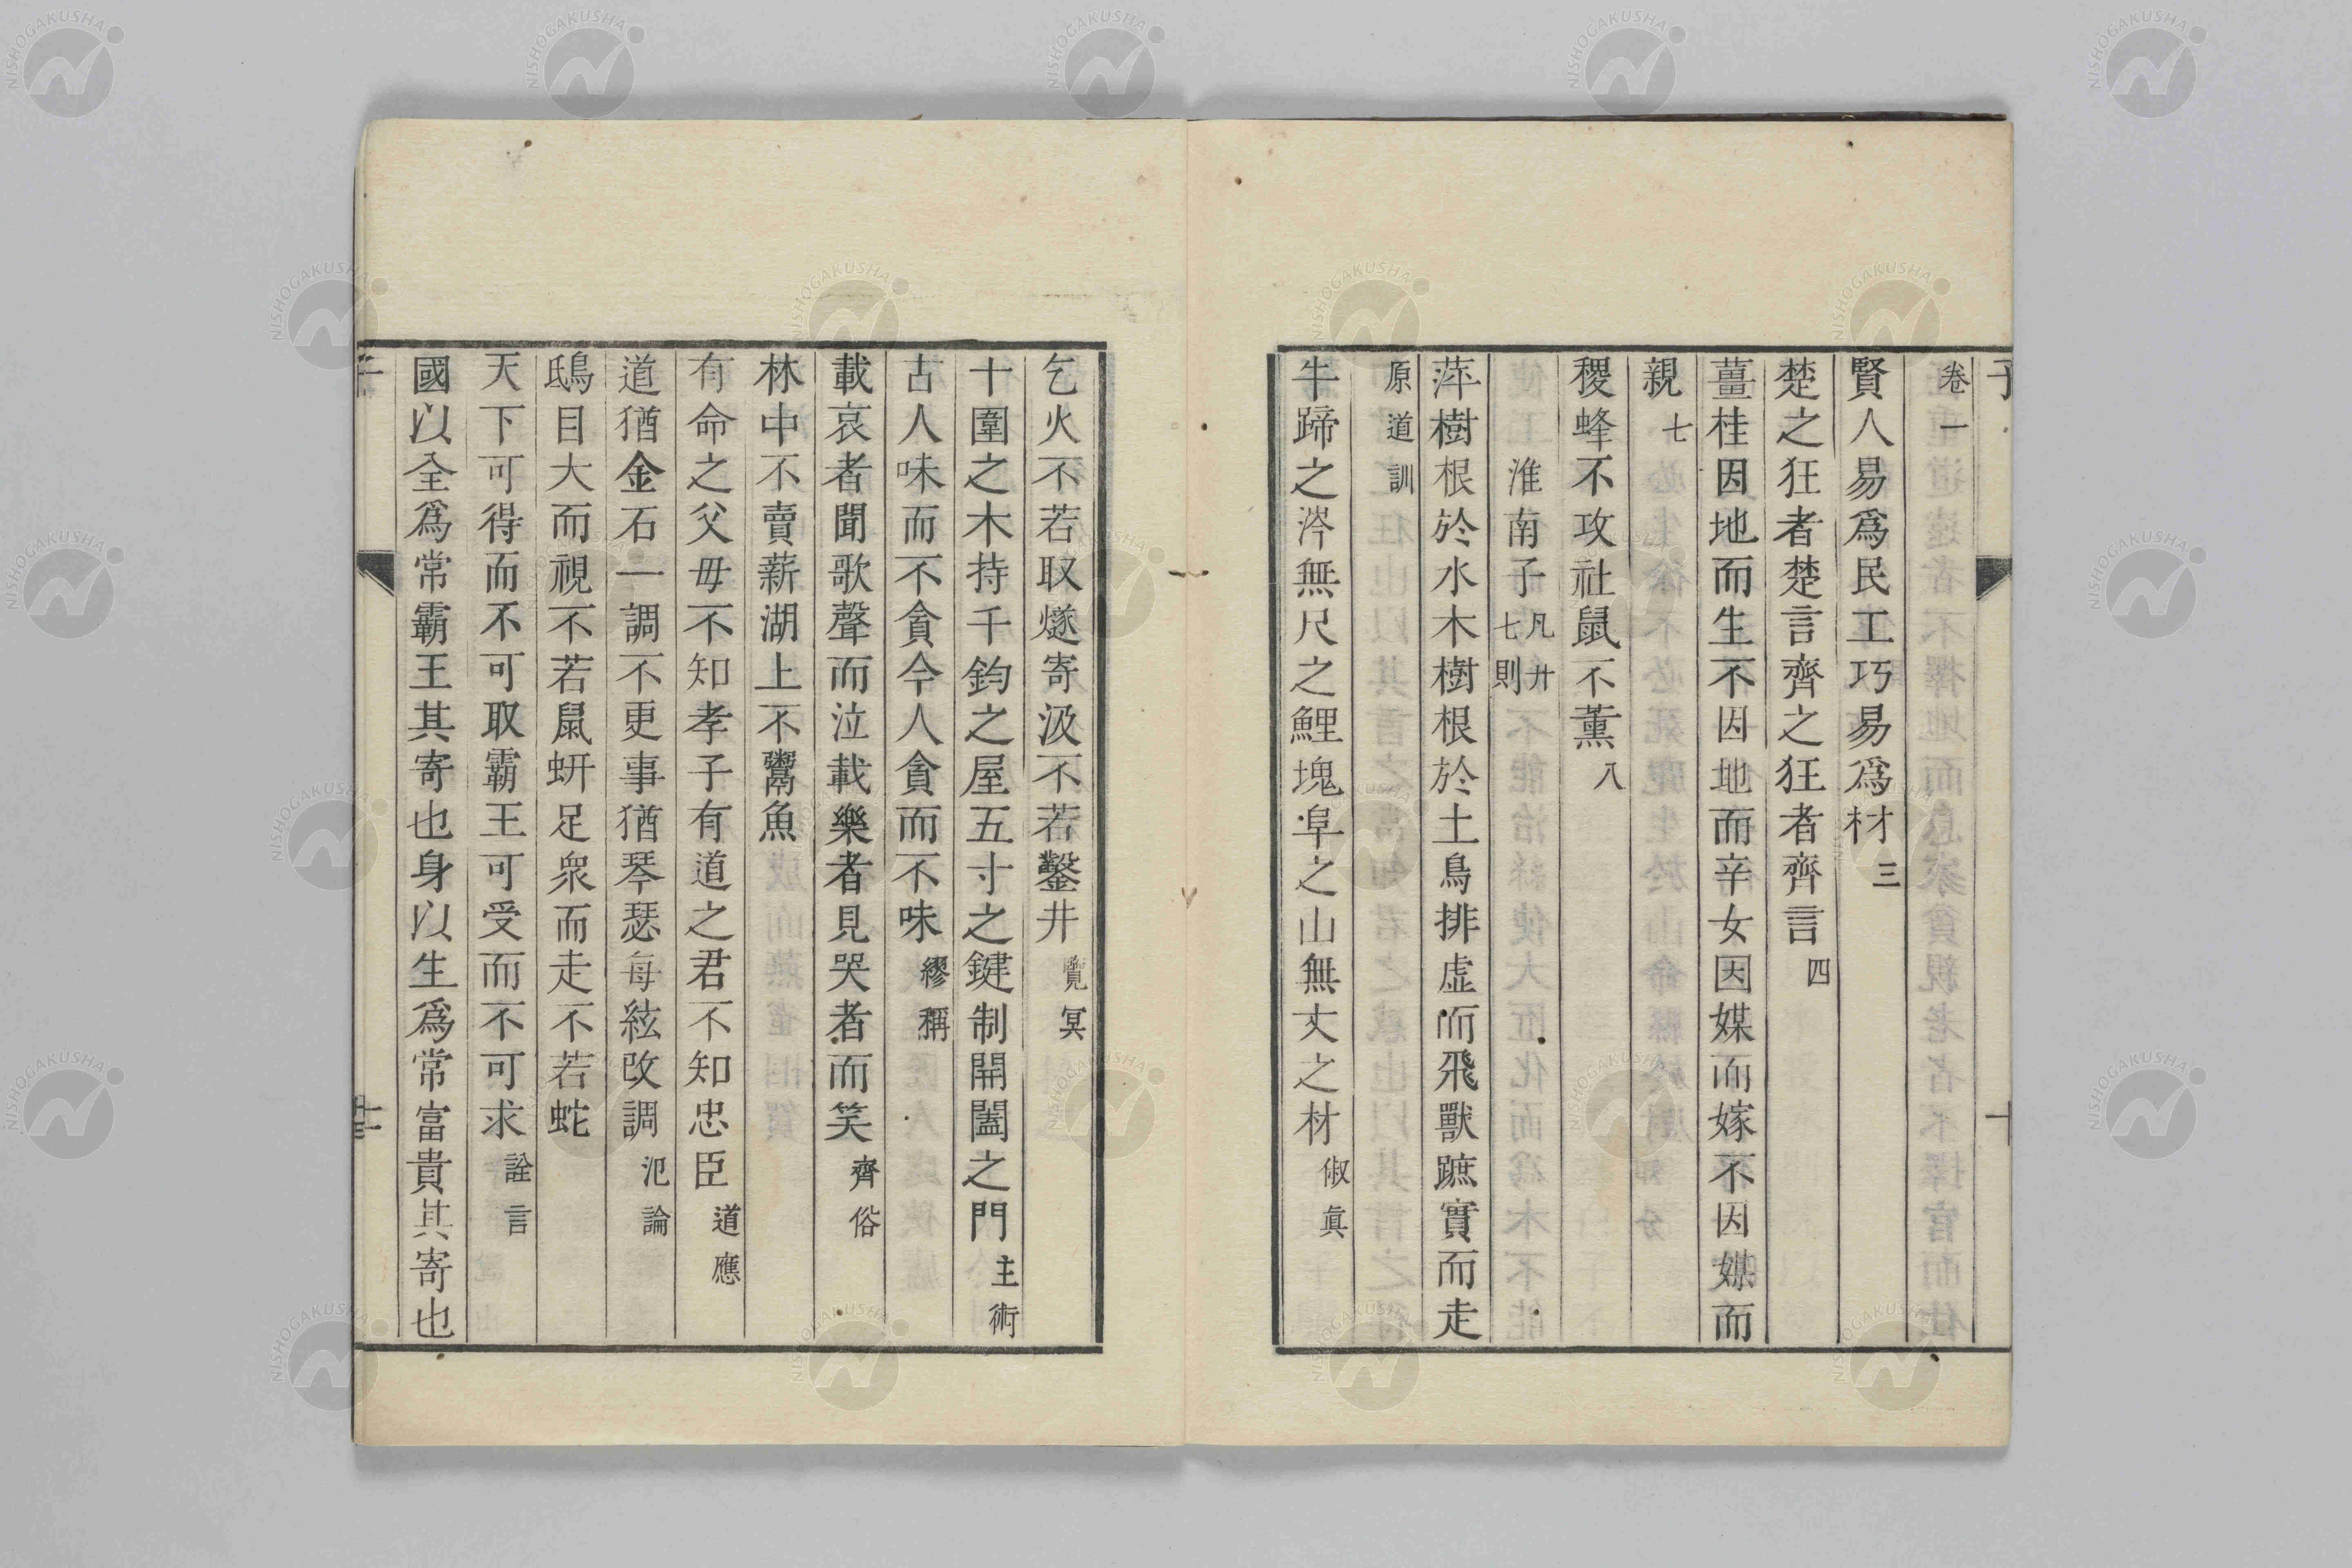 卷一
賢人易爲民工巧易爲材三
楚之狂者楚言齊之狂者齊言四
薑桂因地而生不因地而辛女因媒而嫁不因媒而
親七
稷蜂不攻社鼠不薰八
淮南子凡廾七則
萍樹根於水木樹根於土鳥排虛而飛獸蹠實而走
原道訓
牛蹄之涔無尺之鯉塊阜之山無丈之材俶眞
乞火不若取燧寄汲不若鑿井覽冥
十圍之木持千鈞之屋五寸之鍵制開闔之門主術
古人味而不貪今人貪而不味繆稱
載哀者聞歌聲而泣載樂者見哭者而笑齊俗
林中不賣薪湖上不鬻魚
有命之父母不知孝子有道之君不知忠臣道應
道猶金石一調不更事猶琴瑟每絃改調氾論
鴟目大而視不若鼠蚈足衆而走不若蛇
天下可得而不可取霸王可受而不可求詮言
國以全爲常霸王其寄也身以生爲常富貴其寄也
NISHOGAKUSHA